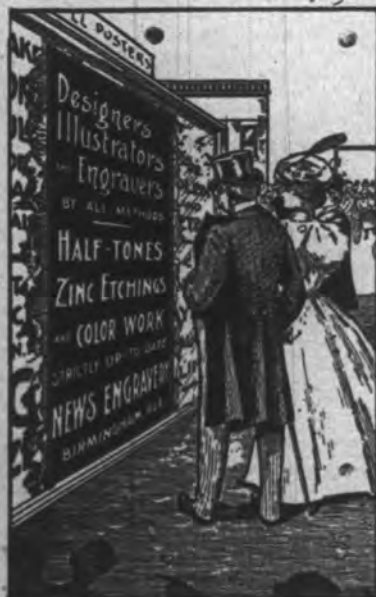 LL POSTERS
Designers
Illustrators
AND Engravers
BY ALL METHODS
HALF-TONES
ZINC ETCHINGS
AND COLOR WORK
STRICTLY UP TO DATE
NEWS ENGRAVERY
BIRMINGHAM ALA.